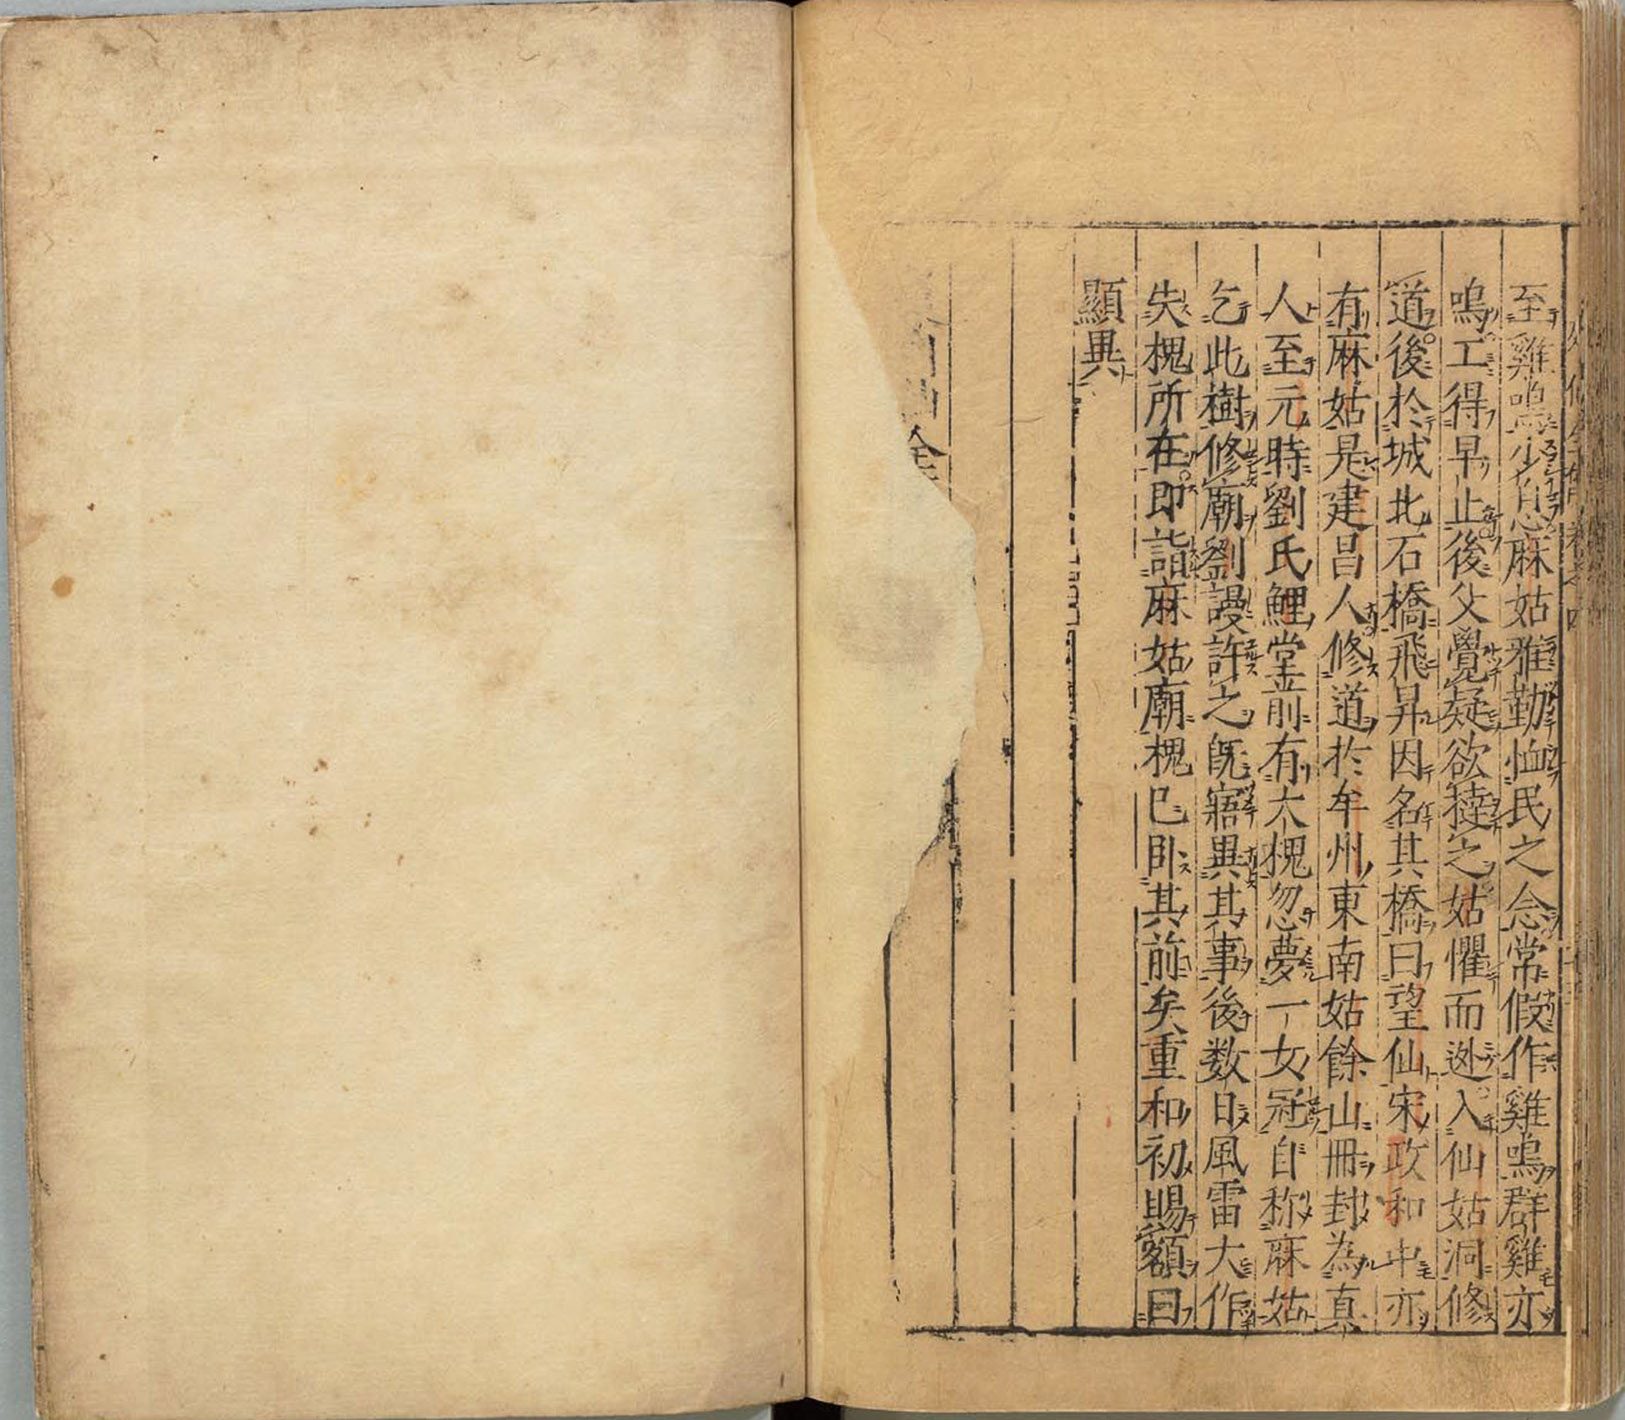 至雞鳴少息麻姑雅勤恤民之念常假作雞鳴群雞亦
鳴工得早止後父覺疑欲撻之姑懼而逃入仙姑洞修
道後於城北石橋飛昇因名其橋曰望仙宋政和中亦
有麻姑是建昌人修道於牟州東南姑餘山冊封為真
人至元時劉氏鯉堂前有大槐忽夢一女冠自称麻姑
乞此樹修廟劉謾許之既寤異其事後数日風雷大作
失槐所在即詣麻姑廟槐已卧其前矣重和初賜額曰
顯異